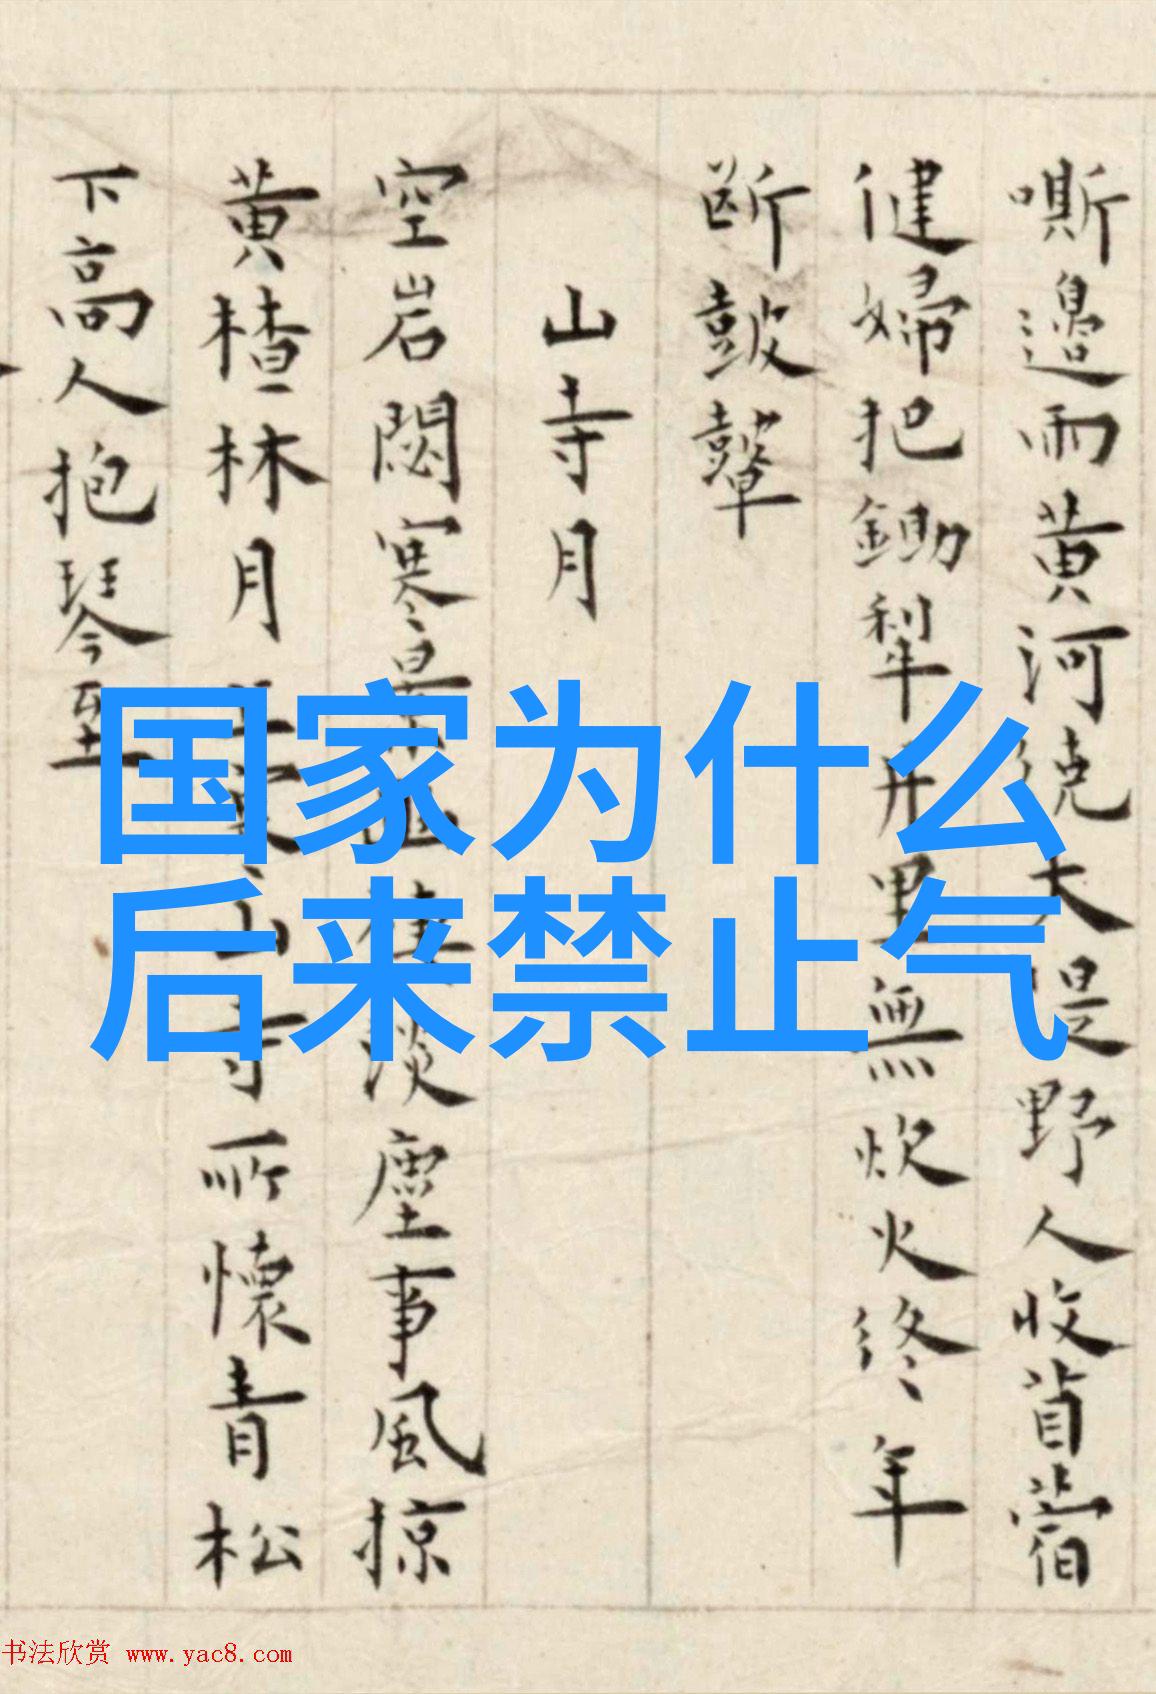 嘶邊雨黃河繞大堤野人收苜蓿
健婦把鋤犁井里無炊火終年
斷鼓鼙
山寺月
空岩閟寒景
淡塵事風掠
黃楂林月
寺所懷青松
下高人抱琴至
国家为什么
后来禁止气
书法欣赏 www.yac8.com